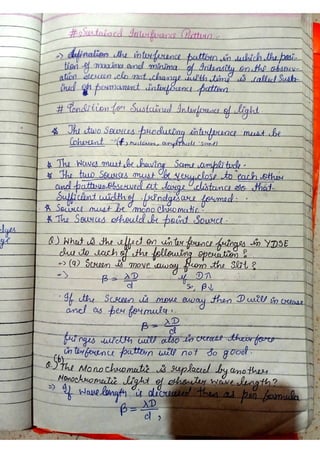 # Sustained Interference Pattern -
-> defination the interference pattern in which the posi-
tion of maxima and minima of Intensity on the observ-
ation screen do not change with time is called Susta-
ined or permanent interference pattern
# Condition for Sustained Interference of light
* The two Sources producing interference must be
Coherent
* The waves must be having Same amplitude.
* The two Sources must be very close to each other
and pattern observed at large distance so that
Sufficient width of fringes are formed.
* Source must be monochromatic.
* The Sources should be point Source.
Q.) What is the effect on interference fringes in YDSE
due to each of the following operation?
-> (a) Screen is move away from the Slit?
-> β = λD/d if D↑
β↓
If the Screen is move away then D will increase
and as per formula.
β = λD/d
fringes width will also increase therefore
interference pattern will not so good.
Q. (b) The Monochromatic is replaced by another
Monochromatic light of shorter wave length?
=> If wavelength is decreased then as per formula
β = λD/d,